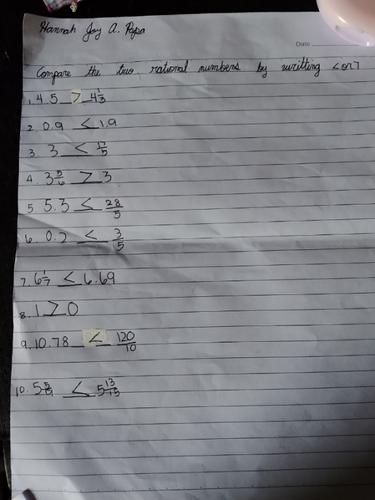 Hannah Joy A. Papa
Date
Compare the two rational numbers by writting < or >
1. 4.5 > 4 1/3
2. 0.9 < 1.9
3. 3 < 17/5
4. 3 5/6 > 3
5. 5.3 < 28/5
6. 0.2 < 3/5
7. 6 1/7 < 6.69
8. 1 > 0
9. 10.78 < 120/10
10. 5 < 5 13/15